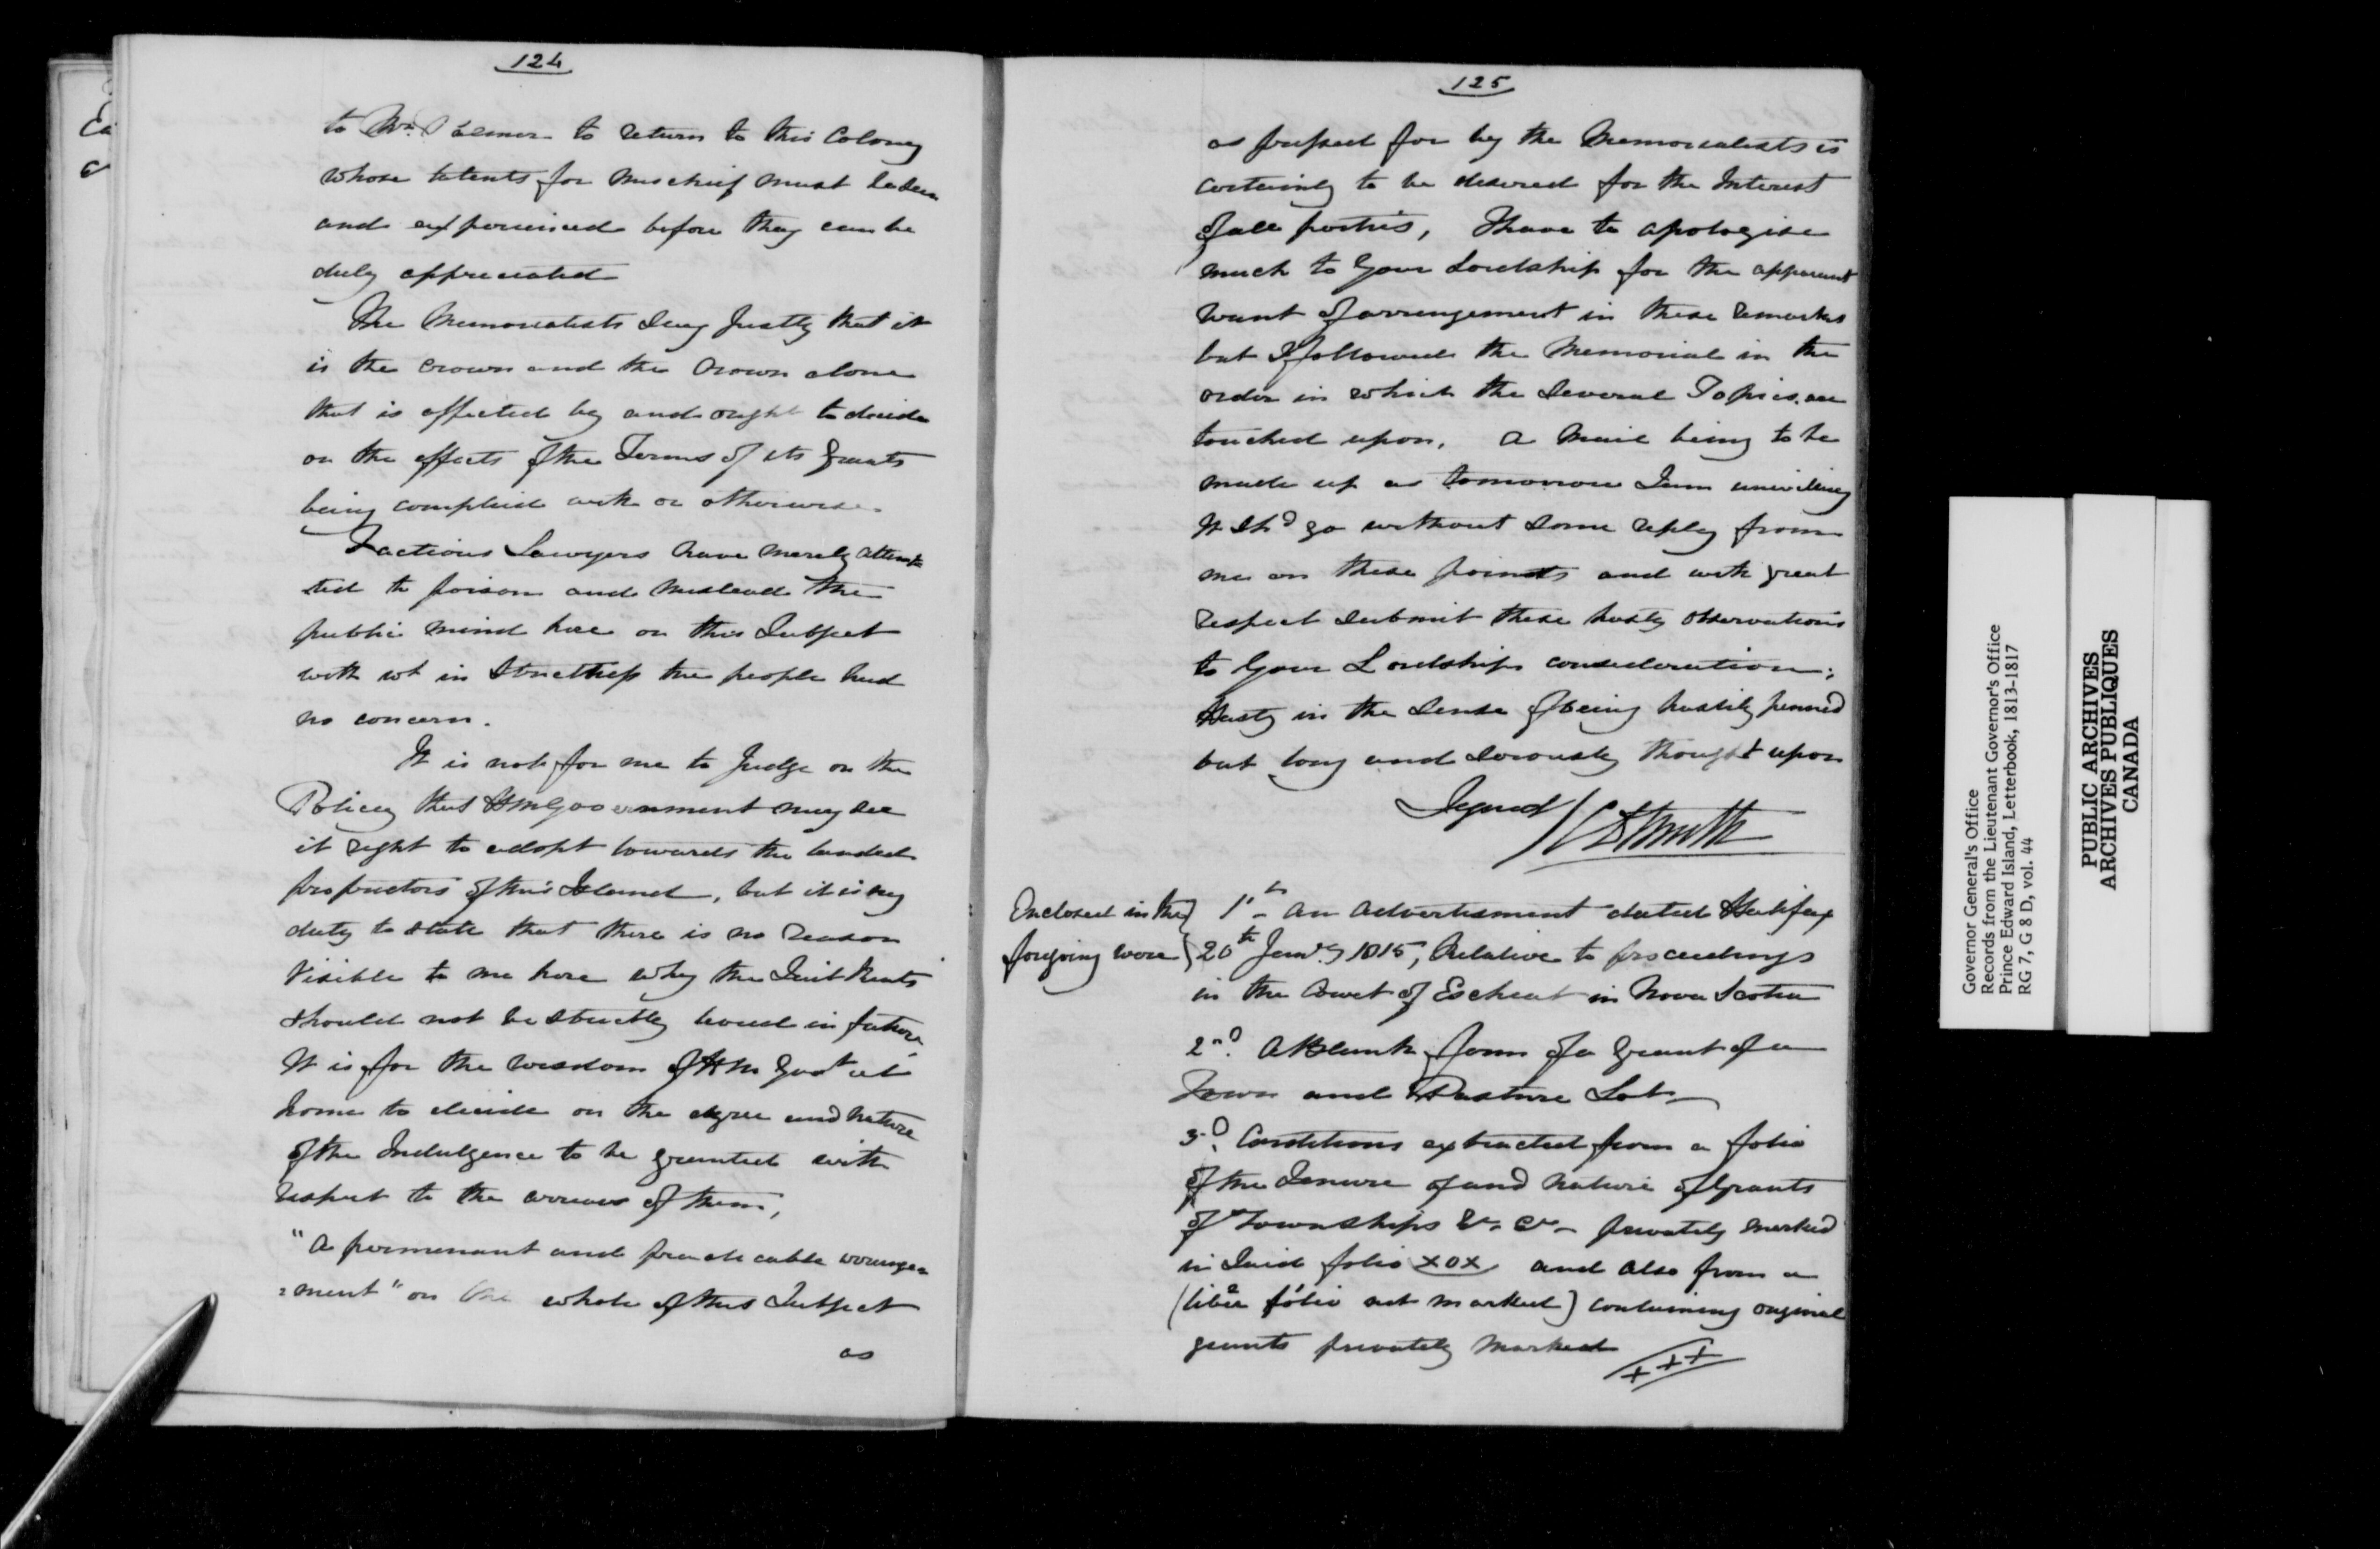 124
to Mr. Palmer to return to this Colony
whose talents for mischief must be seen
and experienced before they can be
duly appreciated
The Memorialists say justly that it
is the Crown and the Crown alone
that is affected by and ought to decide
on the effects of the Terms of its Grants
being complied with or otherwise.
Factious Lawyers have merely attemp
ted to poison and mislead the
public mind here on this Subject
with wh in Strictness the people had
no concern.
It is not for me to Judge on the
Policy that HM Government may see
it right to adopt towards the landed
proprietors of this Island, but it is my
duty to state that there is no reason
Visible to me here why the Quit Rents
should not be strictly levied in future
It is for the wisdom of HM Govt at
home to decide on the degree and nature
of the Indulgence to be granted with
respect to the arrears of them,
"A permenant and practicable arrange=
=ment" on the whole of this Subject
as
125
as prayed for by the Memorialists is
certainly to be desired for the Interest
of all parties, I have to apologise
much to Your Lordship for the apparent
want of arrangement in these remarks
but I followed the Memorial in the
order in which the several Topics are
touched upon. A Mail being to be
made up as tomorrow I am unwilling
It shd go without some reply from
me on these points and with great
respect submit these hasty observations
to Your Lordships consideration;
Hasty in the sense of being hastily penned
but long and seriously thought upon
Signed / CDSmith
Enclosed in the } 1st - An Advertisment dated Halifax
forgoing were } 20th Jany 1815, Relative to proceedings
in the Court of Escheat in Nova Scotia
2nd. A Blank form of a Grant of a
Town and Pasture Lot
3d. Conditions extracted from a folio
of the Tenure of and Nature of Grants
of Townships &c. &c - privately marked
in Said folio XOX and also from a
(liber folio not marked) containing original
grants privately marked
+++
Governor General's Office
Records from the Lieutenant Governor's Office
Prince Edward Island, Letterbook, 1813-1817
RG 7, G 8 D, vol. 44
PUBLIC ARCHIVES
ARCHIVES PUBLIQUES
CANADA